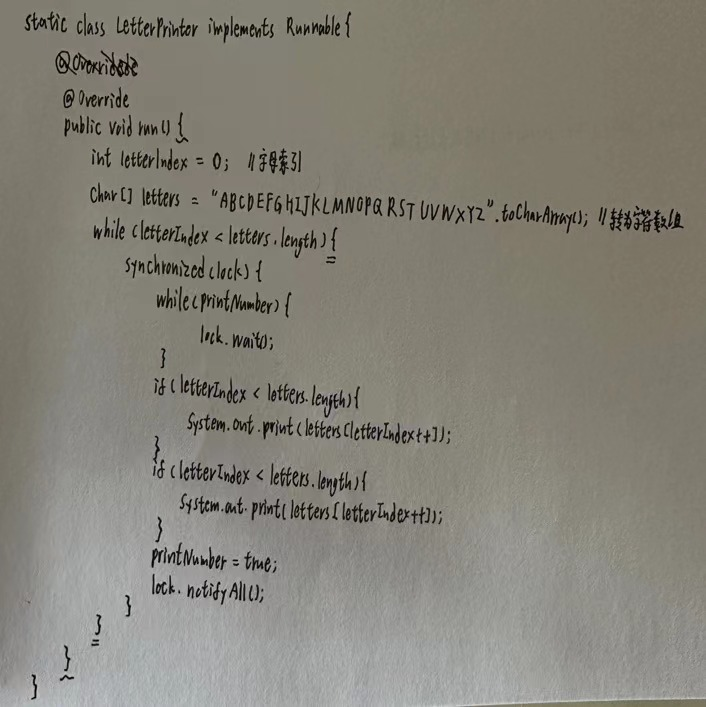 static class LetterPrintor implements Runnable{
@Override
public void run() {
int letterIndex = 0; //字母索引
Char[] letters = "ABCDEFGHIJKLMNOPQRSTUVWXYZ".toCharArray(); //转为字符数组
while (letterIndex < letters.length){
synchronized(lock){
while(printNumber){
lock.wait();
}
if(letterIndex < letters.length){
System.out.print(letters[letterIndex++]);
}
if(letterIndex < letters.length){
System.out.print(letters[letterIndex++]);
}
printNumber = true;
lock.notifyAll();
}
}
}
}